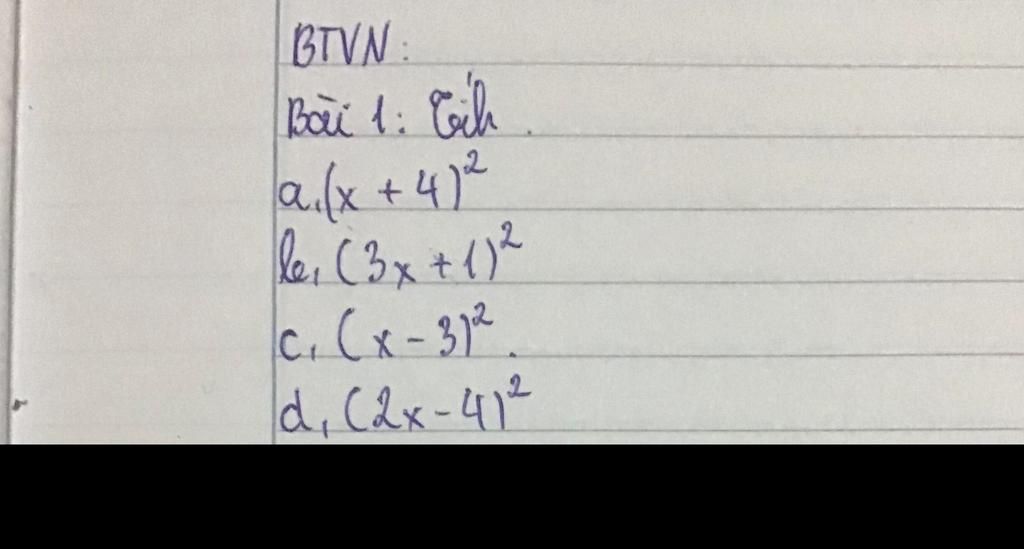 BTVN:
Bài 1: Tính.
a, (x + 4)²
b, (3x + 1)²
c, (x - 3)².
d, (2x - 4)²